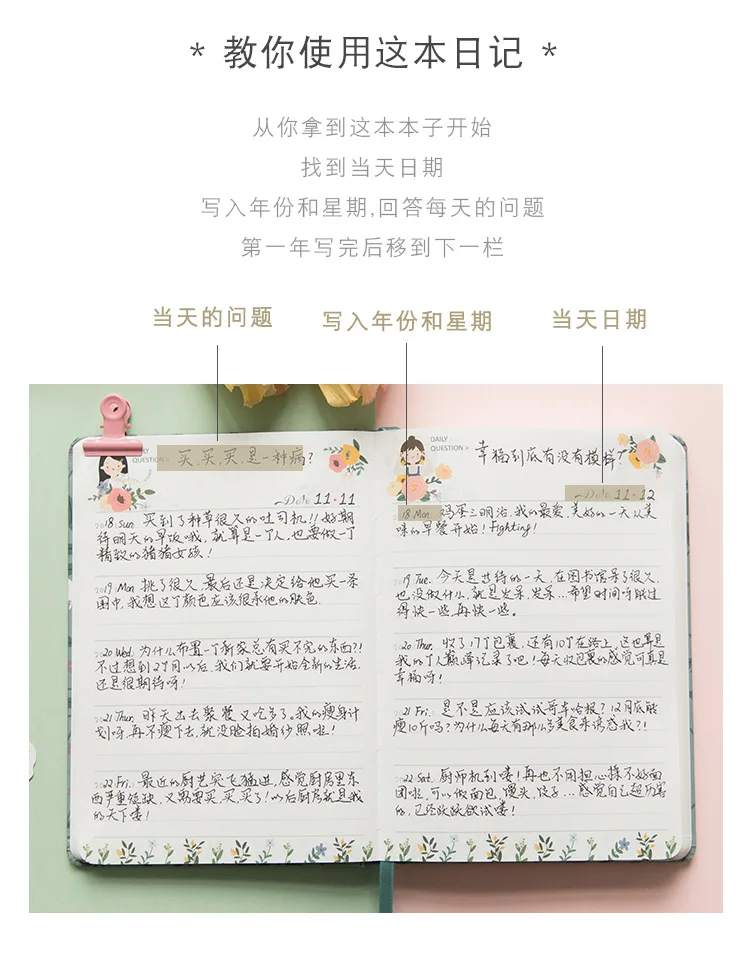 * 教你使用这本日记 *
从你拿到这本本子开始
找到当天日期
写入年份和星期,回答每天的问题
第一年写完后移到下一栏
当天的问题
写入年份和星期
当天日期
DAILY
QUESTION> 买.买.买.是一种病?
Date 11·11
2018 Sun. 买到了种草很久的吐司机!! 好期
待明天的早饭哦, 就算是一个人,也要做一个
精致的猪猪女孩!
2019 Mon 挑了很久 最后还是决定给他买一条
围巾,我想这个颜色应该很衬他的肤色.
2020 Wed. 为什么布置一个新家总有买不完的东西?!
不过想到2个月以后,我们就要开始全新的生活.
还是很期待呀!
2021 Thur. 昨天出去聚餐又吃多了。我的瘦身计
划呀,再不瘦下去,就没脸拍婚纱照啦!
2022 Fri. 最近的厨艺突飞猛进,感觉厨房里东
西严重短缺,又需要买,买,买了!以后厨房就是我
的天下喽!
DAILY
QUESTION> 幸福到底有没有模样?
Date 11·12
2018 Mon 鸡蛋三明治.我的最爱,美好的一天从美
味的早餐开始! Fighting!
2019 Tue. 今天是期待的一天.在图书馆呆了很久,
也没做什么,就是发呆,发呆...希望时间呀能过
得快一些,再快一些。
2020 Thur. 收了17个包裹,还有10个在路上,这也算是
我的个人巅峰记录了吧!每天收包裹的感觉可真是
幸福呀!
2021 Fri. 是不是应该试试哥本哈根? 12月底能
瘦10斤吗?为什么每天有那么多美食来诱惑我?!
2022 Sat. 厨师机到喽!再也不用担心揉不好面
团啦,可以做面包,馒头,饺子...感觉自己超厉害
的,已经跃跃欲试喽!